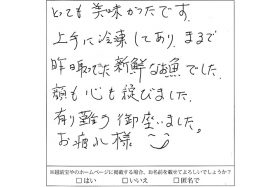 とっても美味かったです。
上手に冷凍してあり、まるで
昨日取てた新鮮なお魚でした。
顔も心も綻びました。
有り難う御座いました。
お疲れ様
※越前宝やのホームページに掲載する場合、お名前を載せてよろしいでしょうか?
□はい □いいえ □匿名で